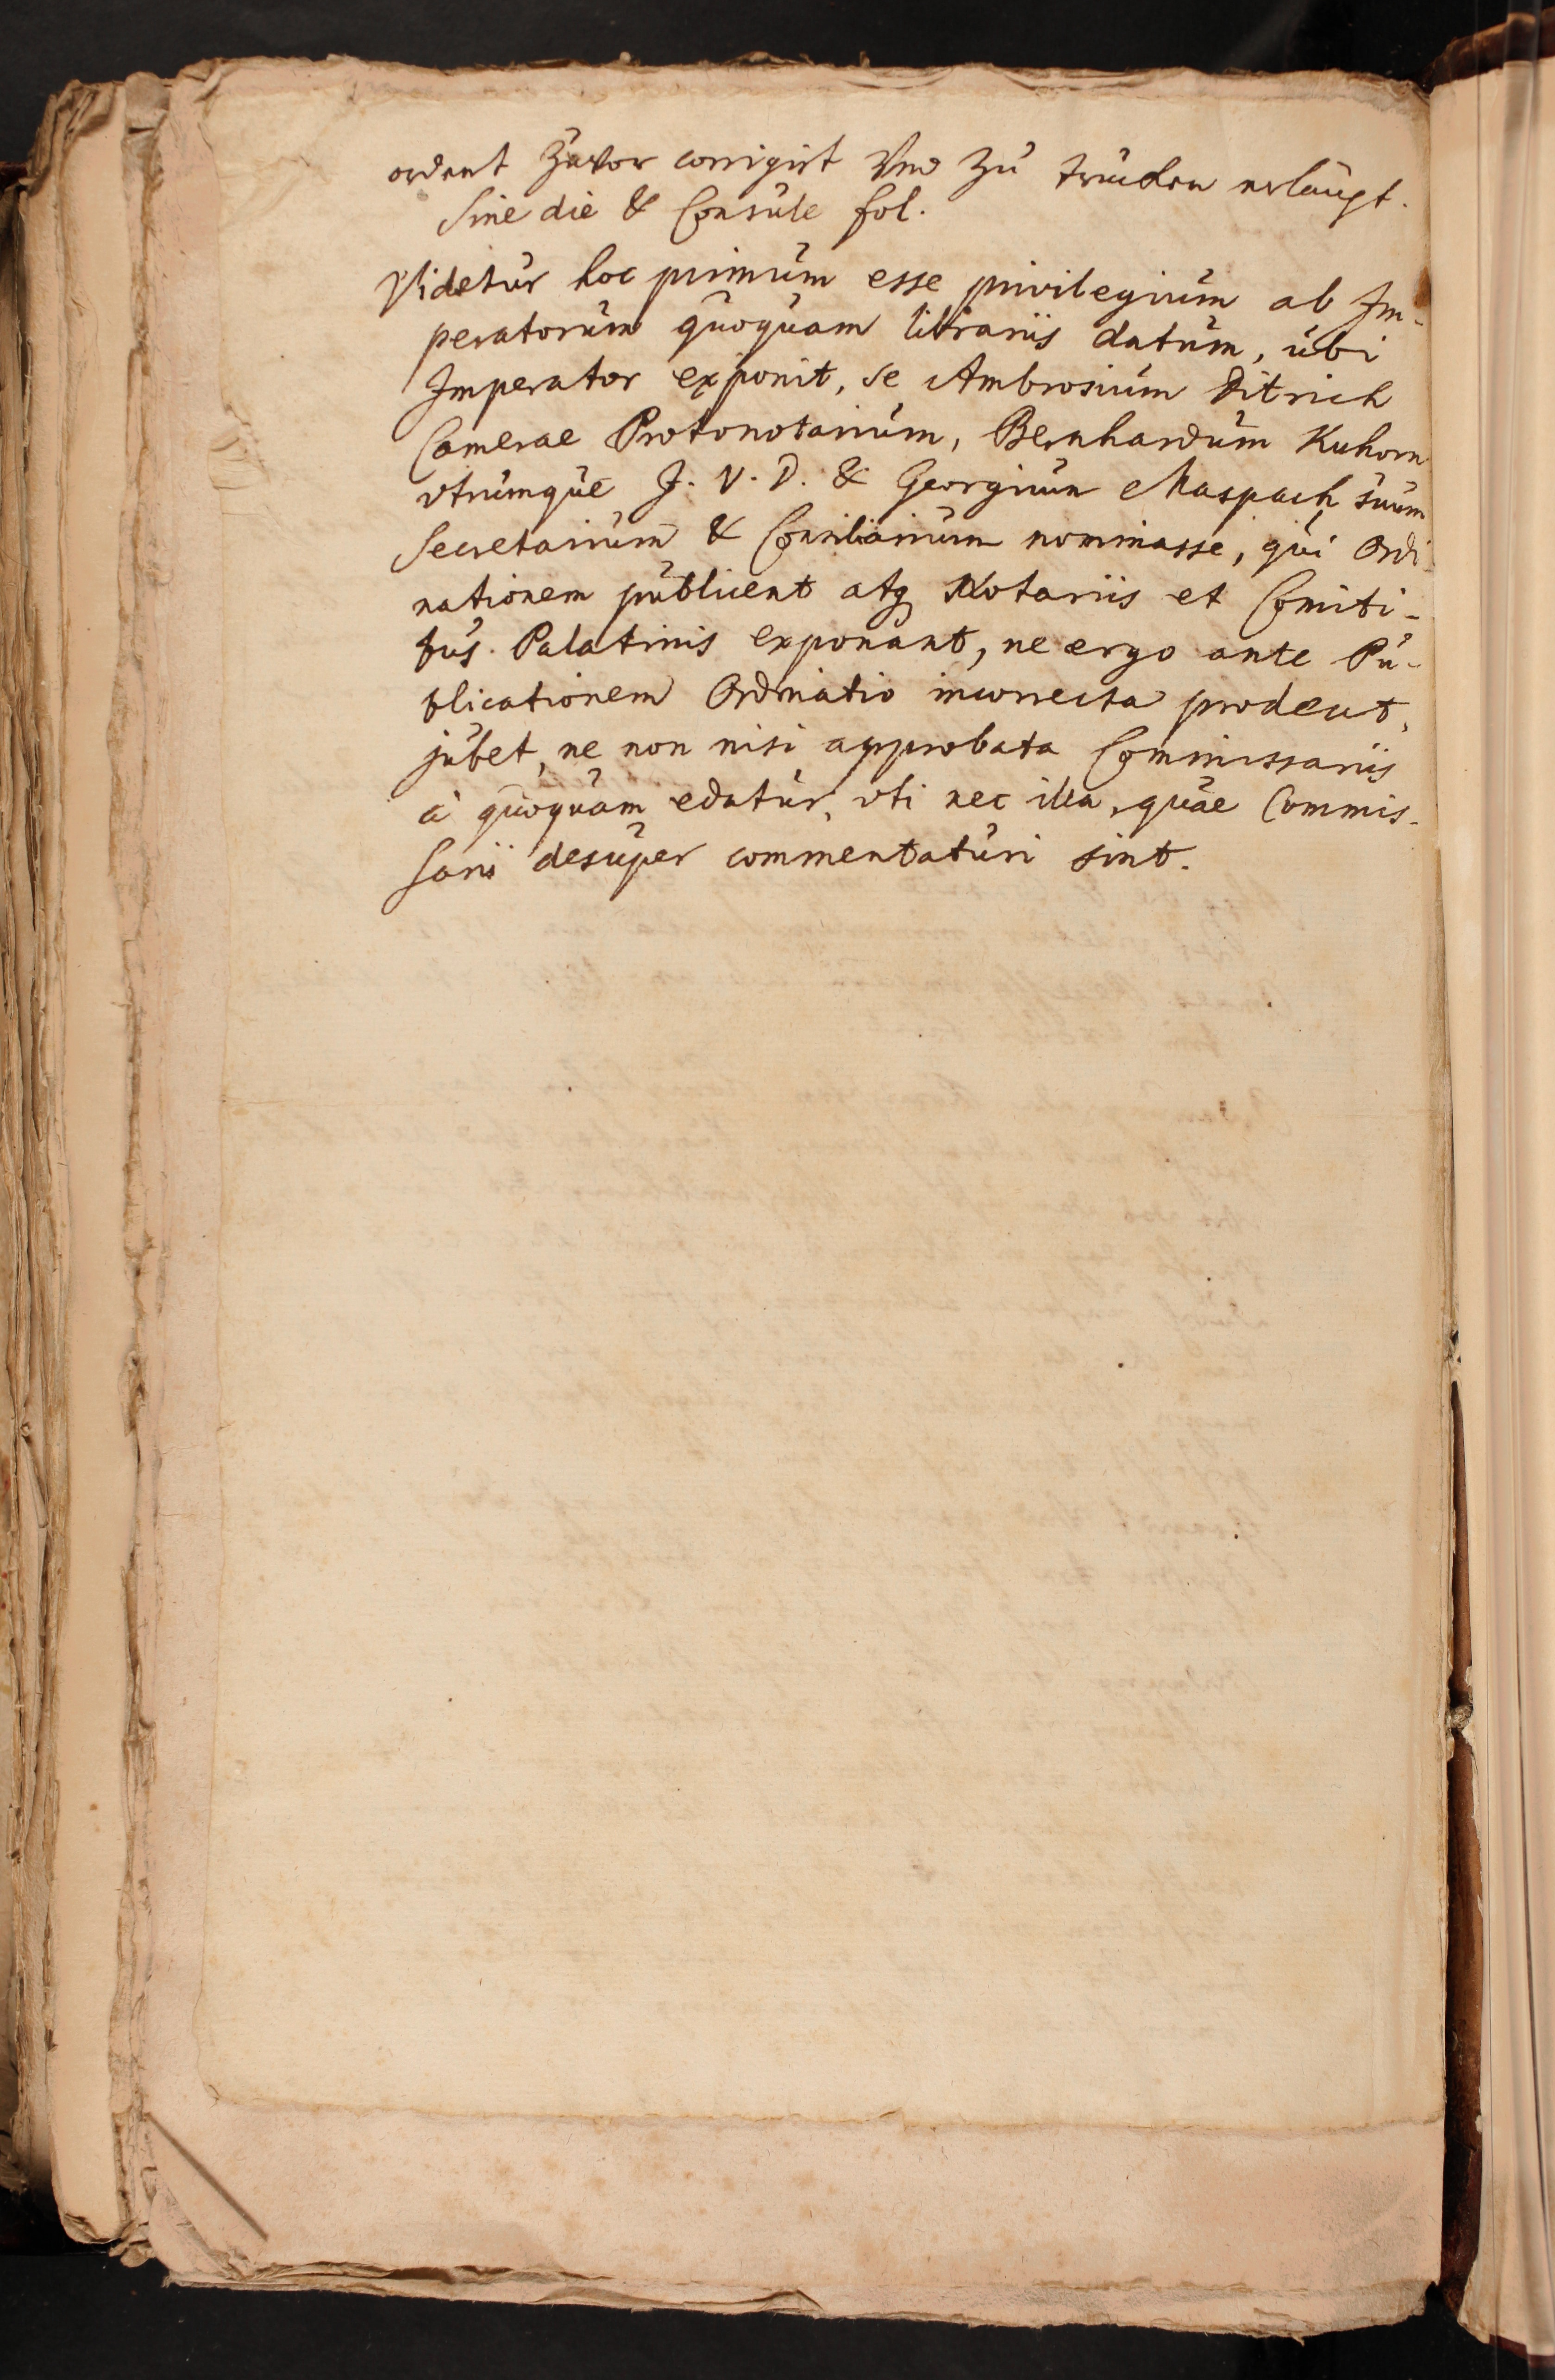 ordent zuvor corrigirt Vnd zu trucken erlaugt.
Sine die & Consule fol.
Videtur hoc primum esse privilegium ab Im-
peratorum quoquam librariis datum, ubi
Imperator exponit, se Ambrosium Ditrich
Camerae Protonotarium, Bernhardum Kuhorn
vtrumque J. V. D. & Georgium Maspach suum
Secretarium & Consiliarium nominasse, qui Ordi-
nationem publicent atq Notariis et Comiti-
bus Palatinis exponant, ne ergo ante Pu-
blicationem Ordinatio incorrecta prodeat,
jubet, ne non nisi approbata Commissariis
à quoquam edatur, vti nec illa, quae Commis-
sarii desuper commentaturi sint.